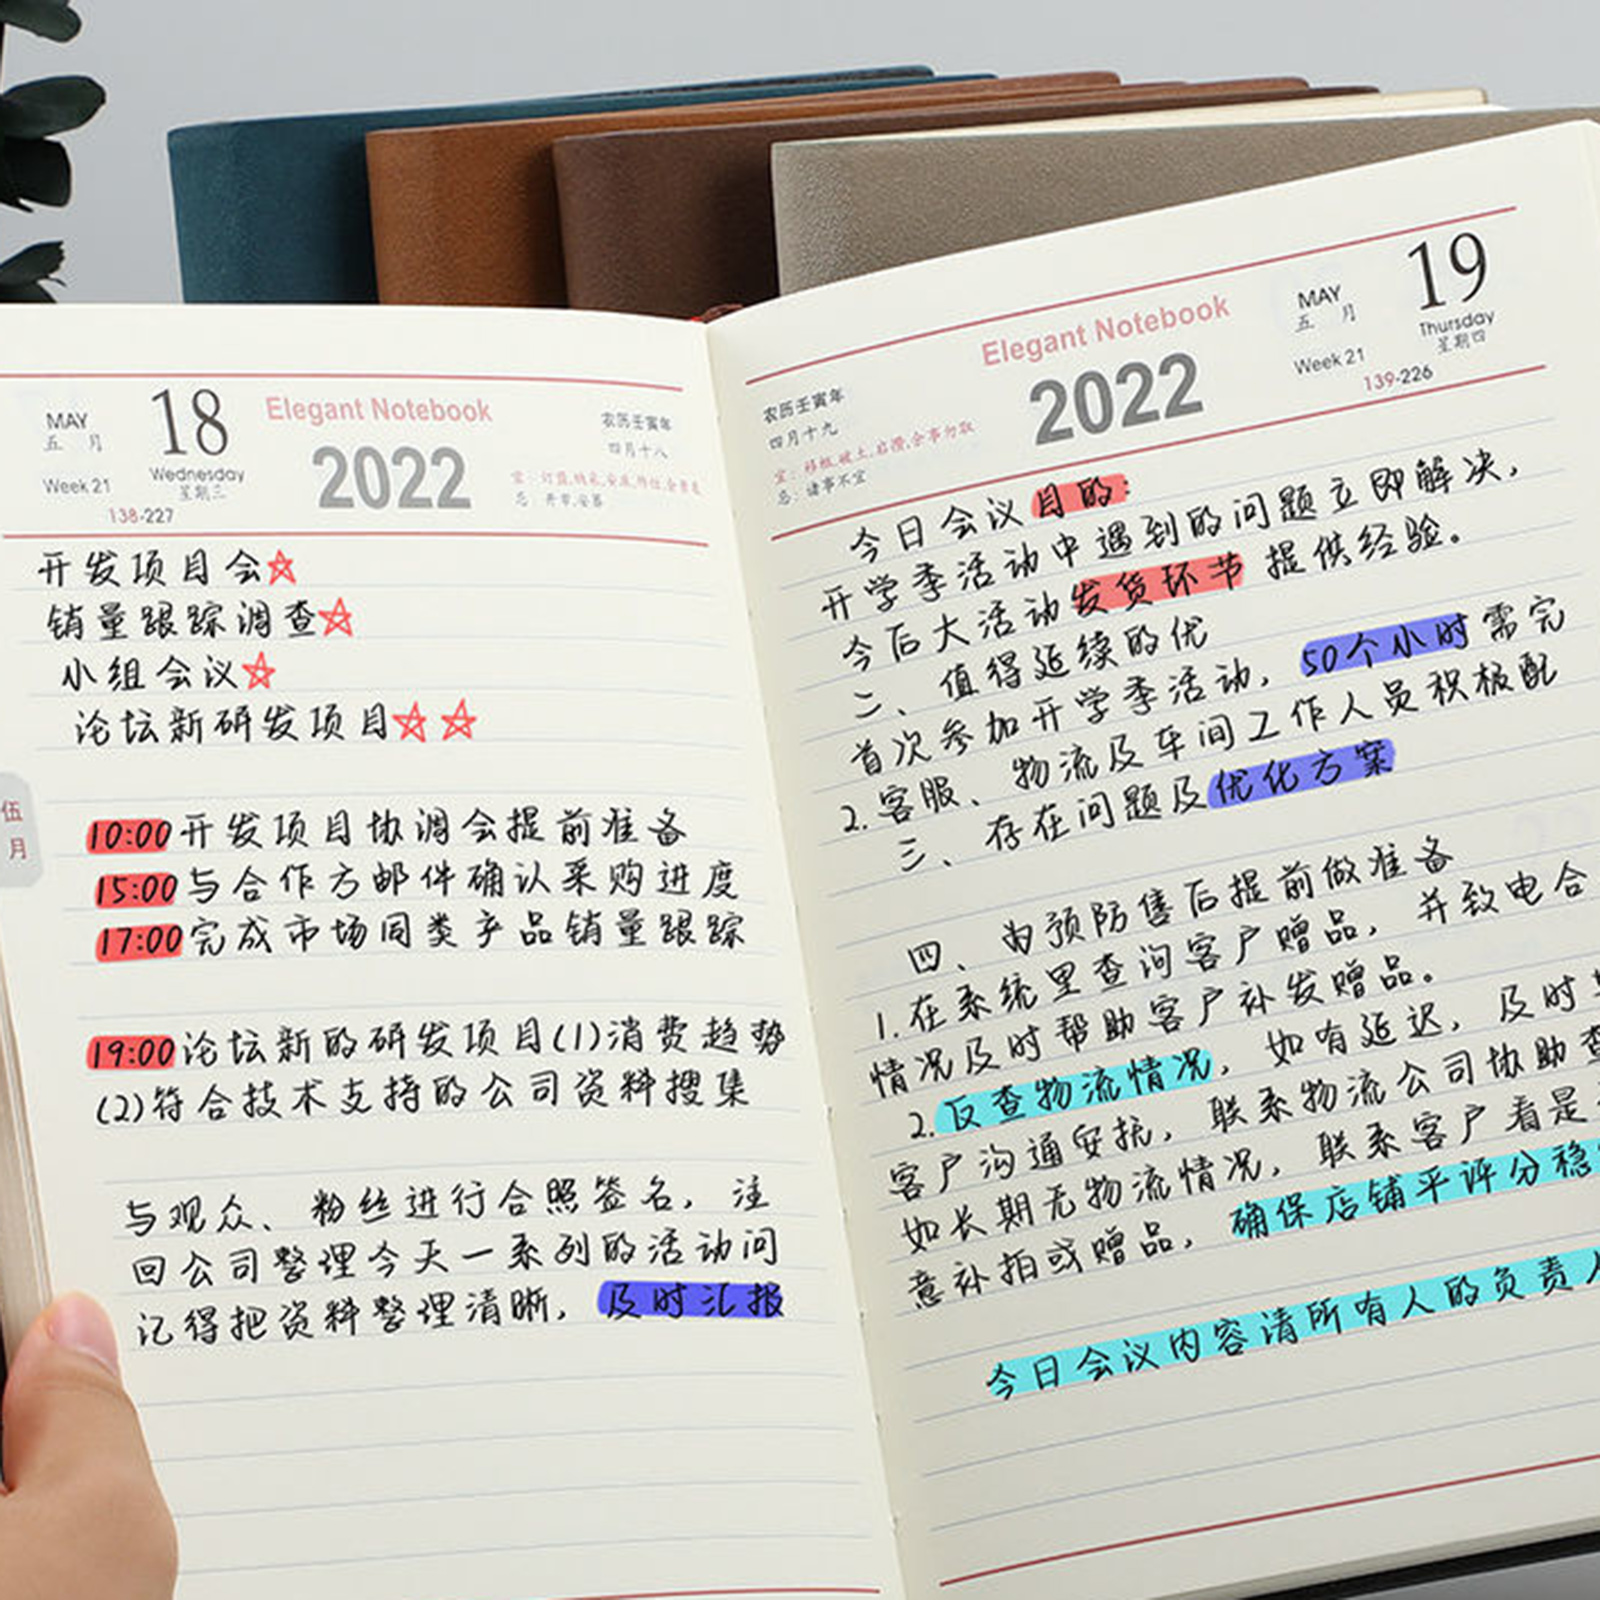 MAY
五 月
18
Wednesday
星期三
Week 21
138-227
Elegant Notebook
2022
农历壬寅年
四月十八
开发项目会☆
销量跟踪调查☆
小组会议☆
论坛新研发项目☆☆
伍
月
10:00 开发项目协调会提前准备
15:00 与合作方邮件确认采购进度
17:00 完成市场同类产品销量跟踪
19:00 论坛新的研发项目(1)消费趋势
(2)符合技术支持的公司资料搜集
与观众、粉丝进行合照签名,注
回公司整理今天一系列的活动问
记得把资料整理清晰,及时汇报
农历壬寅年
四月十九
忌: 诸事不宜
Elegant Notebook
2022
MAY
五 月
19
Thursday
星期四
Week 21
139-226
今日会议目的:
开学季活动中遇到的问题立即解决,
今后大活动发货环节提供经验。
二、值得延续的优
首次参加开学季活动,50个小时需完
2.客服、物流及车间工作人员积极配
三、存在问题及优化方案
四、为预防售后提前做准备
1.在系统里查询客户赠品,并致电合
情况及时帮助客户补发赠品。
2.反查物流情况,如有延迟,及时
客户沟通安抚,联系物流公司协助查
如长期无物流情况,联系客户看是
意补拍或赠品,确保店铺平评分稳
今日会议内容清所有人的负责人